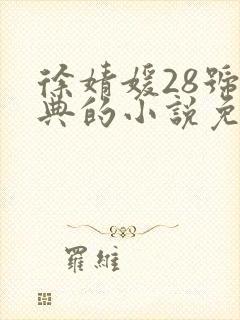 徐婧媛28號
典的小說免
羅維